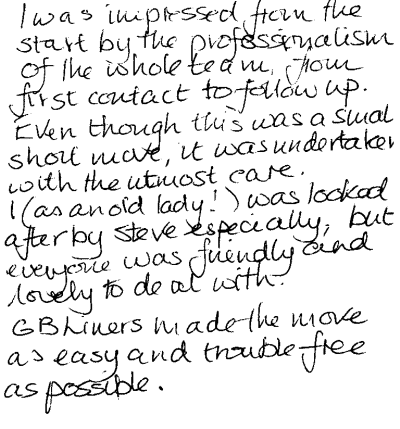 I was impressed from the
start by the professionalism
of the whole team, from
first contact to follow up.
Even though this was a small
short move, it was undertaken
with the utmost care.
I (as an old lady!) was looked
after by Steve especially, but
everyone was friendly and
lovely to deal with.
GB Liners made the move
as easy and trouble free
as possible.